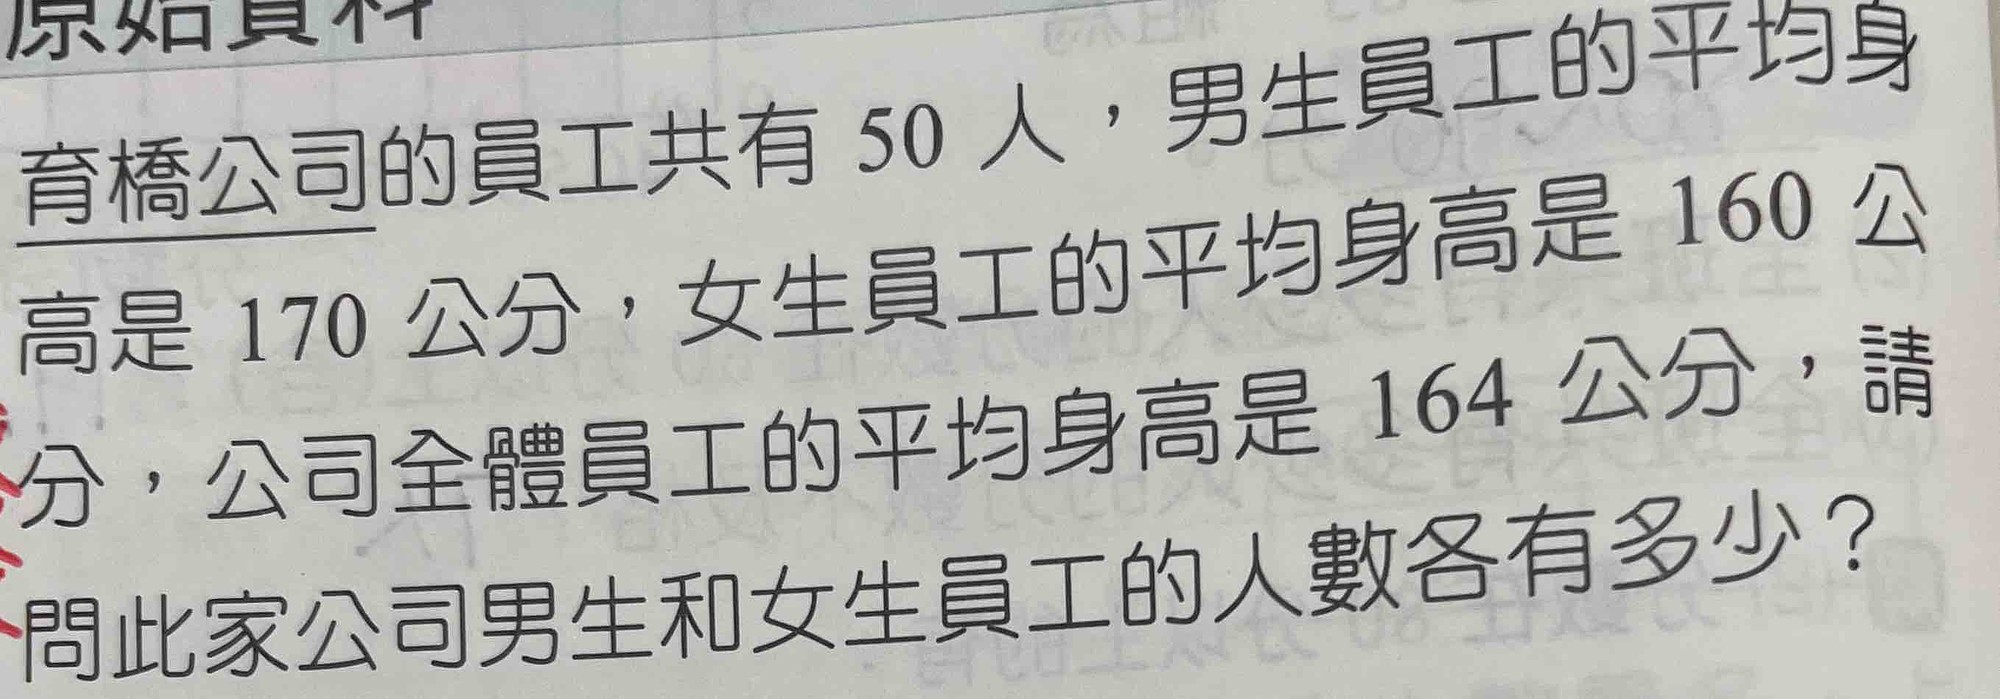 原始資料
育橋公司的員工共有 50 人，男生員工的平均身
高是 170 公分，女生員工的平均身高是 160 公
分，公司全體員工的平均身高是 164 公分，請
問此家公司男生和女生員工的人數各有多少？